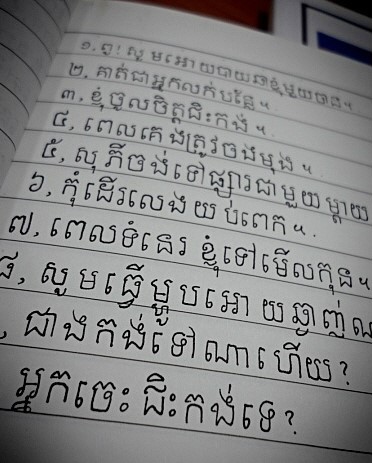 ១, ពូ! សូមអោយបាយឆាខ្ញុំមួយចាន។
២, គាត់ជាអ្នកលក់បន្លែ។
៣, ខ្ញុំចូលចិត្តជិះកង់។
៤, ពេលគេងត្រូវចងមុង។
៥, សុភីចង់ទៅផ្សារជាមួយម្តាយ
៦, កុំដើរលេងយប់ពេក។
៧, ពេលទំនេរ ខ្ញុំទៅមើលកុន។
៨, សូមធ្វើម្ហូបអោយឆ្ងាញ់ណ
, ជាងកង់ទៅណាហើយ?
អ្នកចេះជិះកង់ទេ?